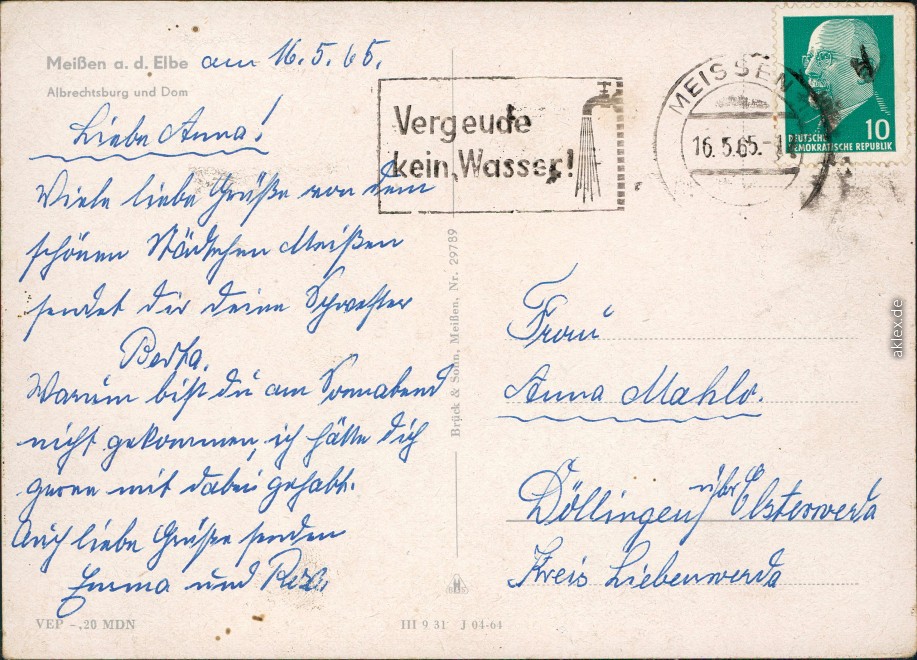 Meißen a. d. Elbe am 16.5.65.
Albrechtsburg und Dom
Liebe Anna!
Viele liebe Grüße von dem
schönen Städtchen Meißen
sendet dir deine Schwester
Berta.
Warum bist du am Sonnabend
nicht gekommen, ich hätte dich
gerne mit dabei gehabt.
Auch liebe Grüße senden
Emma und
VEP -,20 MDN
III 9 31 J 04-64
Brück & Sohn, Meißen, Nr. 29789
Vergeude
kein Wasser!
MEISSEN
16.5.65.-1
10
DEUTSCHE
DEMOKRATISCHE REPUBLIK
Frau
Anna Mahlo.
Döllingen über Elsterwerda
Kreis Liebenwerda
aklex.de